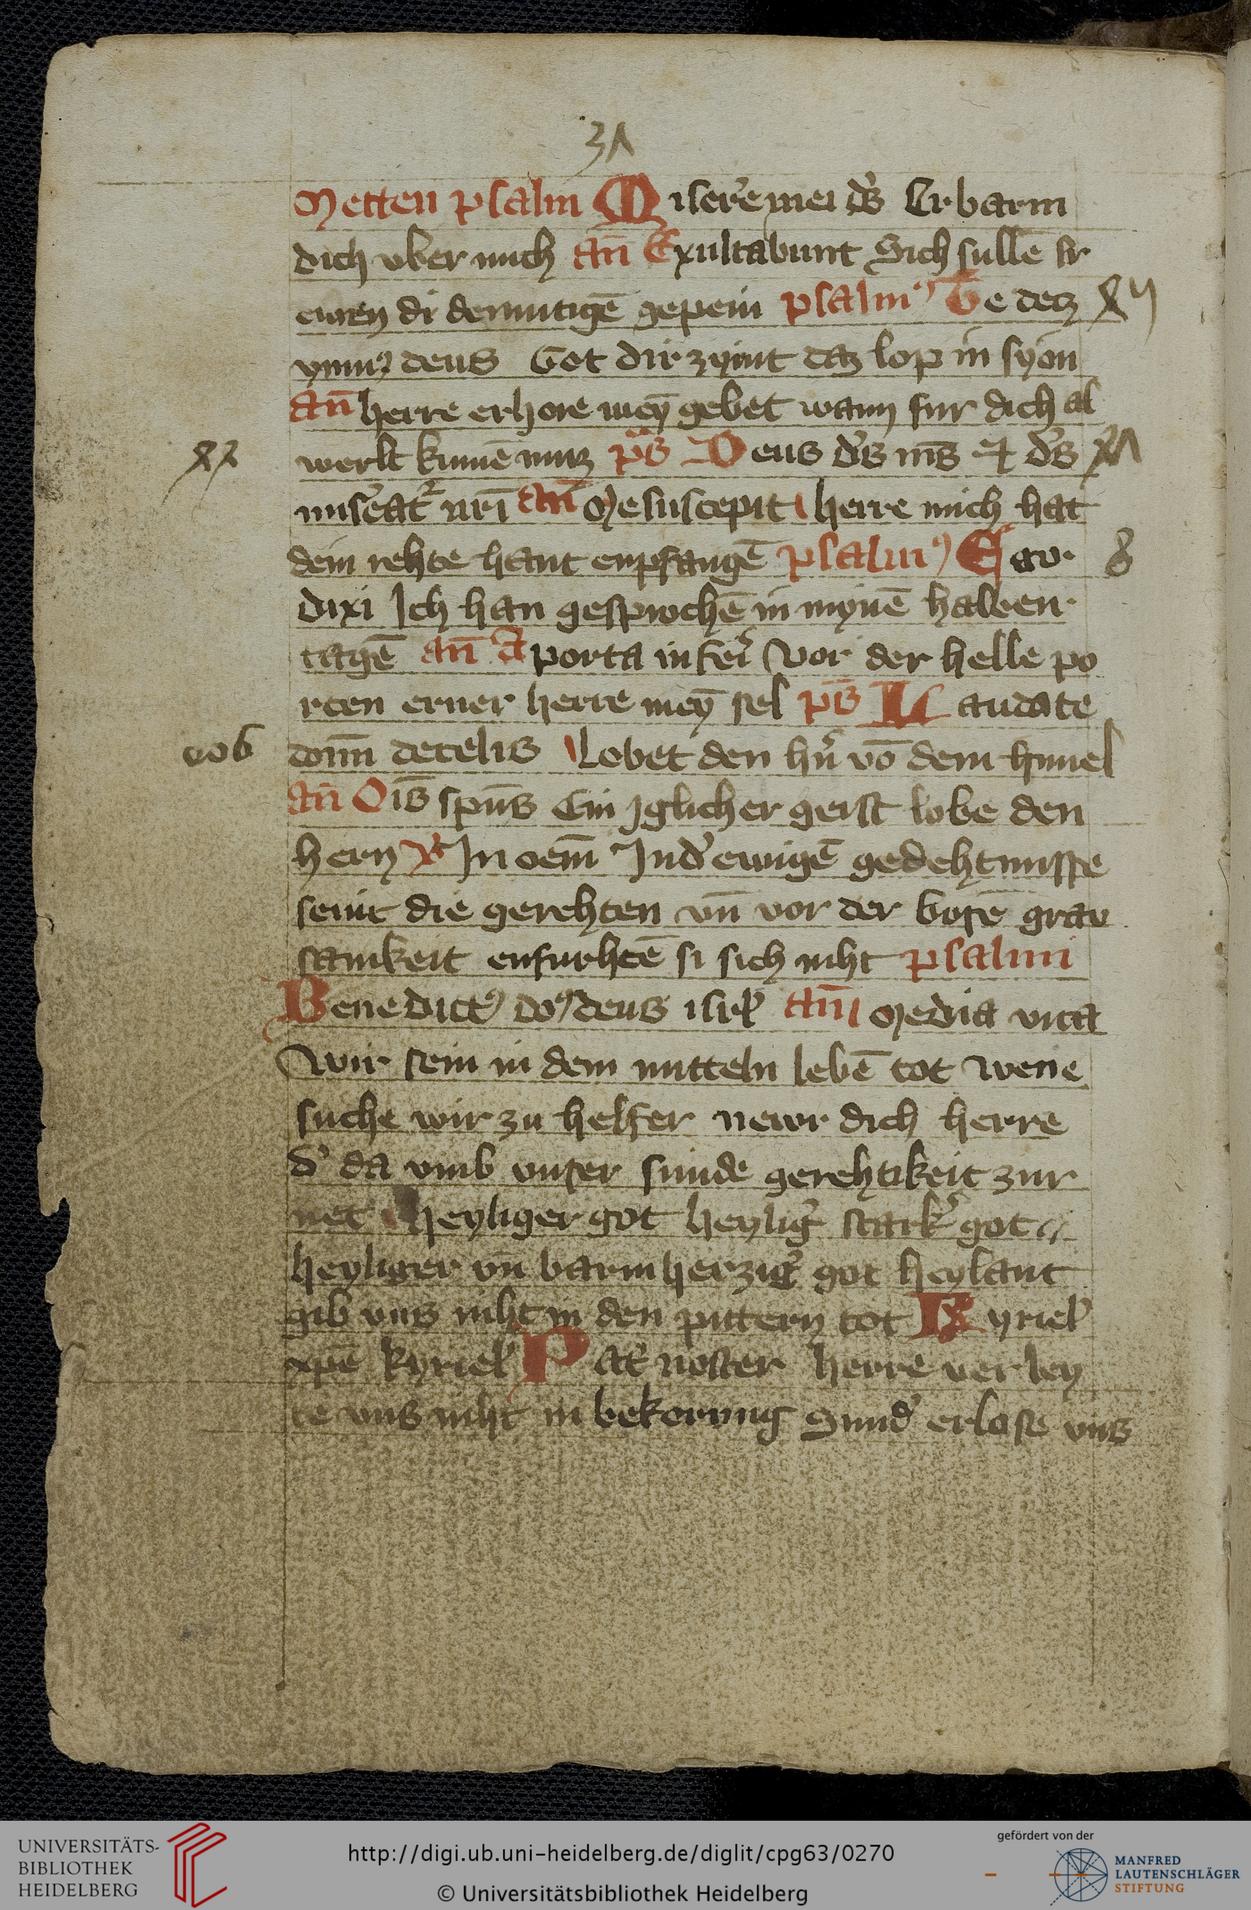 31
Metten psalm Miserere mei ds Erbarm
dich vber mich an Exultabunt Sich sullē fr
ewen di demutigē gepein psalm9 Te decz
ymn9 deus Got dir zymt daz lop in syon
an herre erhore mey gebet wann fur dich al
werlt kumē muz ps Deus ds ms ds
misat nri an Me suscepit herre mich hat
dein rehte hant enpfangē psalm9 Ego
8
dixi Ich han gesprochē in mynē halben
tagē an A porta inferi Vor der helle po
rten erner herre mey sel ps Laudate
dom de celis Lobet den hn vō dem himel
an Ois spūs Ein Iglicher geist lobe den
hern In oem In d' ewigē gedehtnisse
seint die gerehten vn vor der bosē grau
samkeit enfurhtē si sich niht psalm
Benedict9 do9 deus isrl an Media vita
Wir sein in dem mitteln lebē tot wene
suche wir zu helfer newr dich herre
d' da vmb vnser sunde gerehtikeit zur
net heyliger got heylig' stark' got
heyliger vn barmherzig' got heylant
gib vns niht in den pittern tot Kyriel'
xpē kyriel' Pat' noster herre verley
te vns niht in bekorung Sund' erlose vns
UNIVERSITÄTS-
BIBLIOTHEK
HEIDELBERG
http://digi.ub.uni-heidelberg.de/diglit/cpg63/0270
© Universitätsbibliothek Heidelberg
gefördert von der
MANFRED
LAUTENSCHLÄGER
STIFTUNG